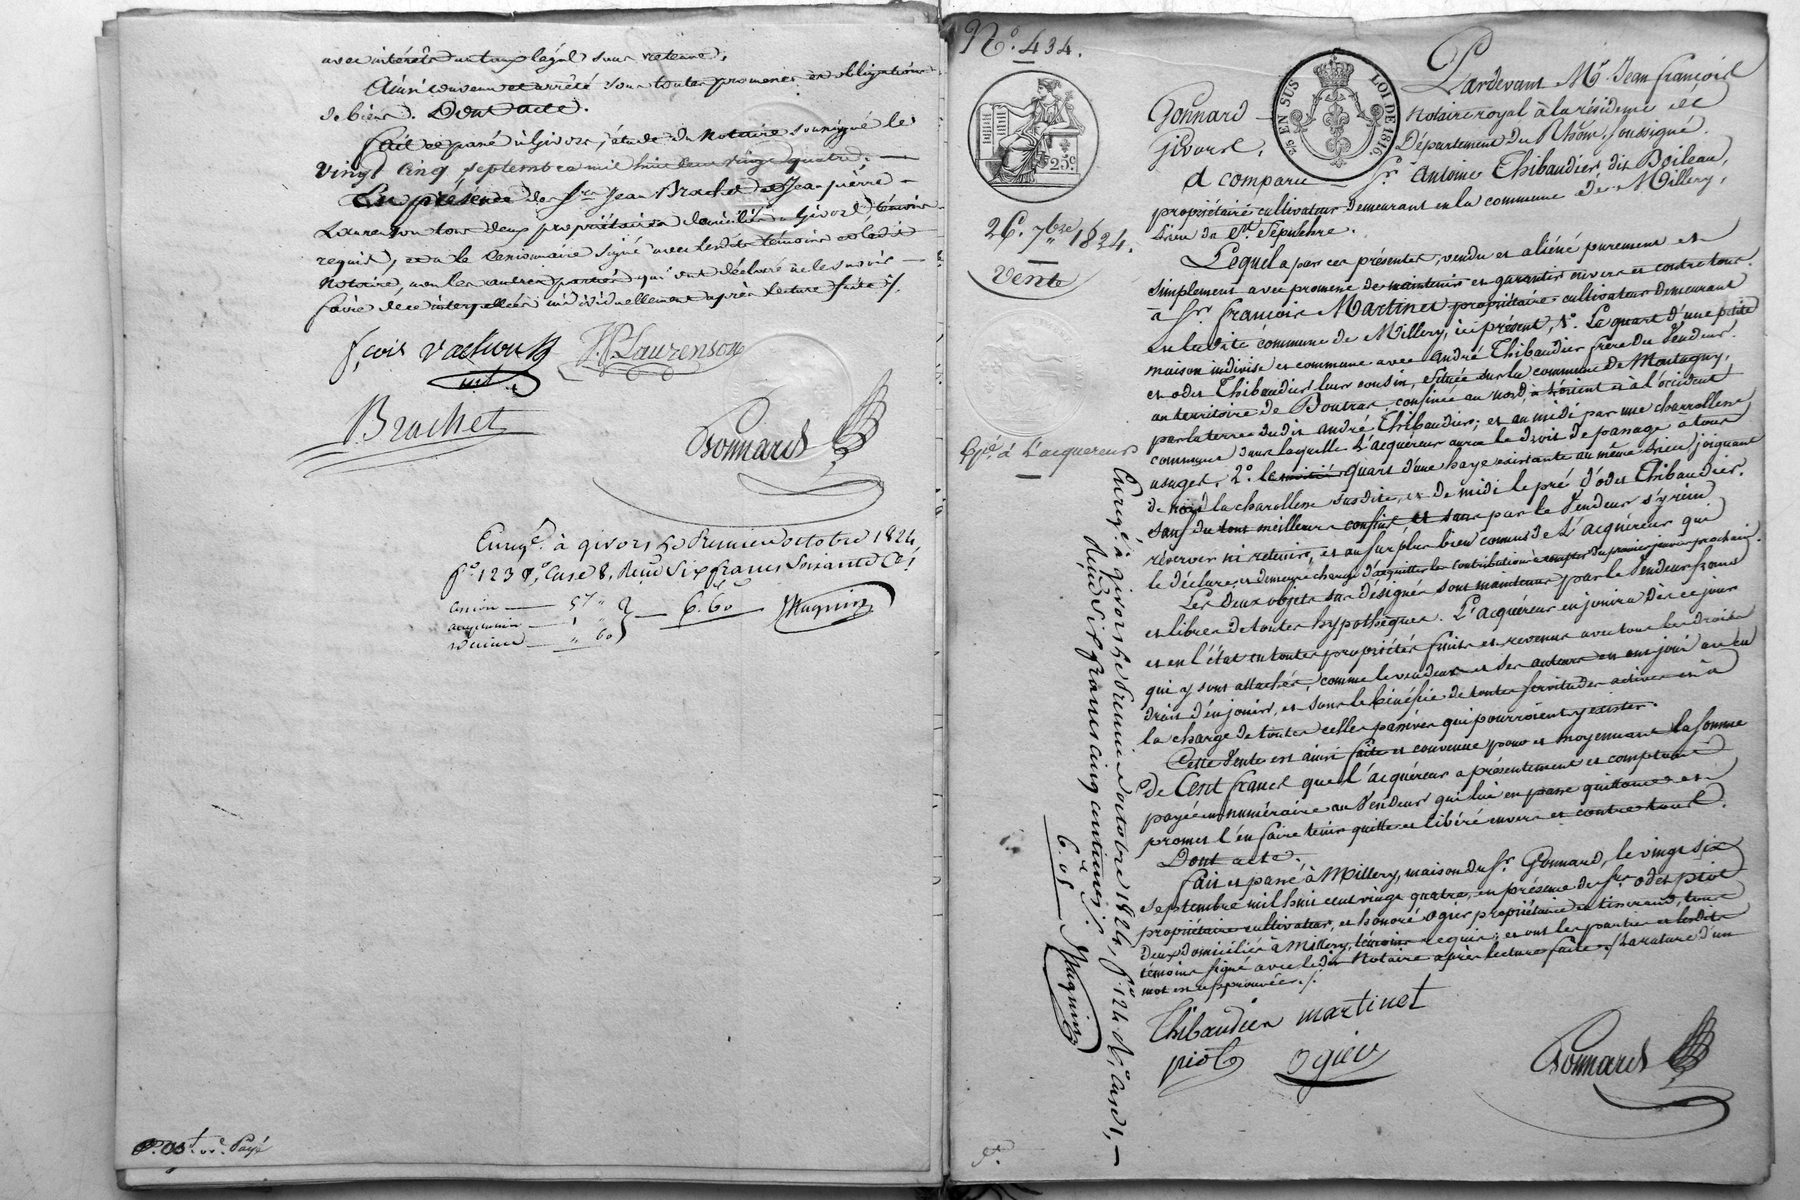 avec intérêts au taux légal sans retenue.
Ainsi convenu et arrêté sous toutes promesses et obligations
de biens. Dont acte.
Fait et passé à Givors, étude du Notaire soussigné le
vingt cinq septembre mil huit cent vingt quatre. —
En présence de Srs Jean Brachet et Jean pierre —
Laurenson tous deux propriétaires domiciliés à Givors témoins
requis, et a le Cessionnaire signé avec lesdits témoins et ledit
Notaire, non les autres parties qui ont déclaré ne le savoir —
faire de ce interpellées individuellement après lecture faite ./.
fçois Vachon JP Laurenson
Brachet
Gonnard
Enregé. à givors le Premier octobre 1824
fo 123 Vo, Case 8, Reçu Six francs Soixante Ces
Cession — 5 "
— 1 " — 6.60
Décime — " 60
Payé
No. 434.
25 EN SUS
LOI DE 1816.
25c.
26. 7bre 1824.
Vente
Expé. à L'acquéreur
Enregé. à givors le Premier octobre 1824, fo. 124 Ro, Case 1, —
Reçu Six francs cinq centimes ./.
6.05
Pardevant Me. Jean François
Gonnard — Notaire royal à la résidence de
Givors, Département du Rhône, soussigné.
A comparu — Sr. Antoine Thibaudier dit Boileau,
propriétaire cultivateur demeurant en la commune de Millery,
lieu du St. Sépulchre.
Lequel a par ces présentes, vendu et aliéné purement et
simplement avec promesse de maintenir et garantir envers et contre tous
à Sr. françois Martinet propriétaire cultivateur demeurant
en ladite commune de Millery, ici présent, 1o. Le quart d'une petite
maison indivise et commune avec André Thibaudier frère du Vendeur
et odet Thibaudier leur cousin, située sur la commune de Montagny,
au territoire de Boutras confinée au nord, à l'orient et à l'occident
par la terre dudit André Thibaudier; et au midi par une charrollère
commune dans laquelle L'acquéreur aura le droit de passage à tous
usages, 2o. le quart d'une haye existante au même lieu joignant
de nord la charollère susdite, et de midi le pré d'odet Thibaudier.
Sauf du tout meilleurs confins, et sans par le Vendeur s'y rien
réserver ni retenir, et au surplus bien connus de L'acquéreur qui
le déclare, et demeure chargé d'acquitter les contributions à compter du premier janvier prochain.
Les deux objets sus désignés sont maintenus par le Vendeur francs
et libres de toutes hypothèques. L'acquéreur en jouira dès ce jour
et en l'état en toutes propriétés fruits et revenus avec tous les droits
qui y sont attachés, comme le vendeur et ses auteurs en ont joui ou eu
droit d'en jouir, et sous le bénéfice de toutes servitudes actives et à
la charge de toutes celles passives qui pourroient y exister.
Cette Vente est ainsi faite et convenue pour et moyennant la somme
de Cent francs que l'acquéreur a présentement et comptant
payée en numéraire au Vendeur qui lui en passe quittance et
promet l'en faire tenir quitte et libéré envers et contre tous.
Dont acte.
Fait et passé à Millery, maison du Sr. Gonnard, le vingt six
septembre mil huit cent vingt quatre, en présence de Srs odet piot
propriétaire cultivateur, et honoré ogier propriétaire et tisserand, tous
deux domiciliés à Millery, témoins requis; et ont les parties et lesdits
témoins signé avec ledit Notaire après lecture faite ./. La rature d'un
mot est approuvée ./.
Thibaudier martinet
piot Ogier
Gonnard